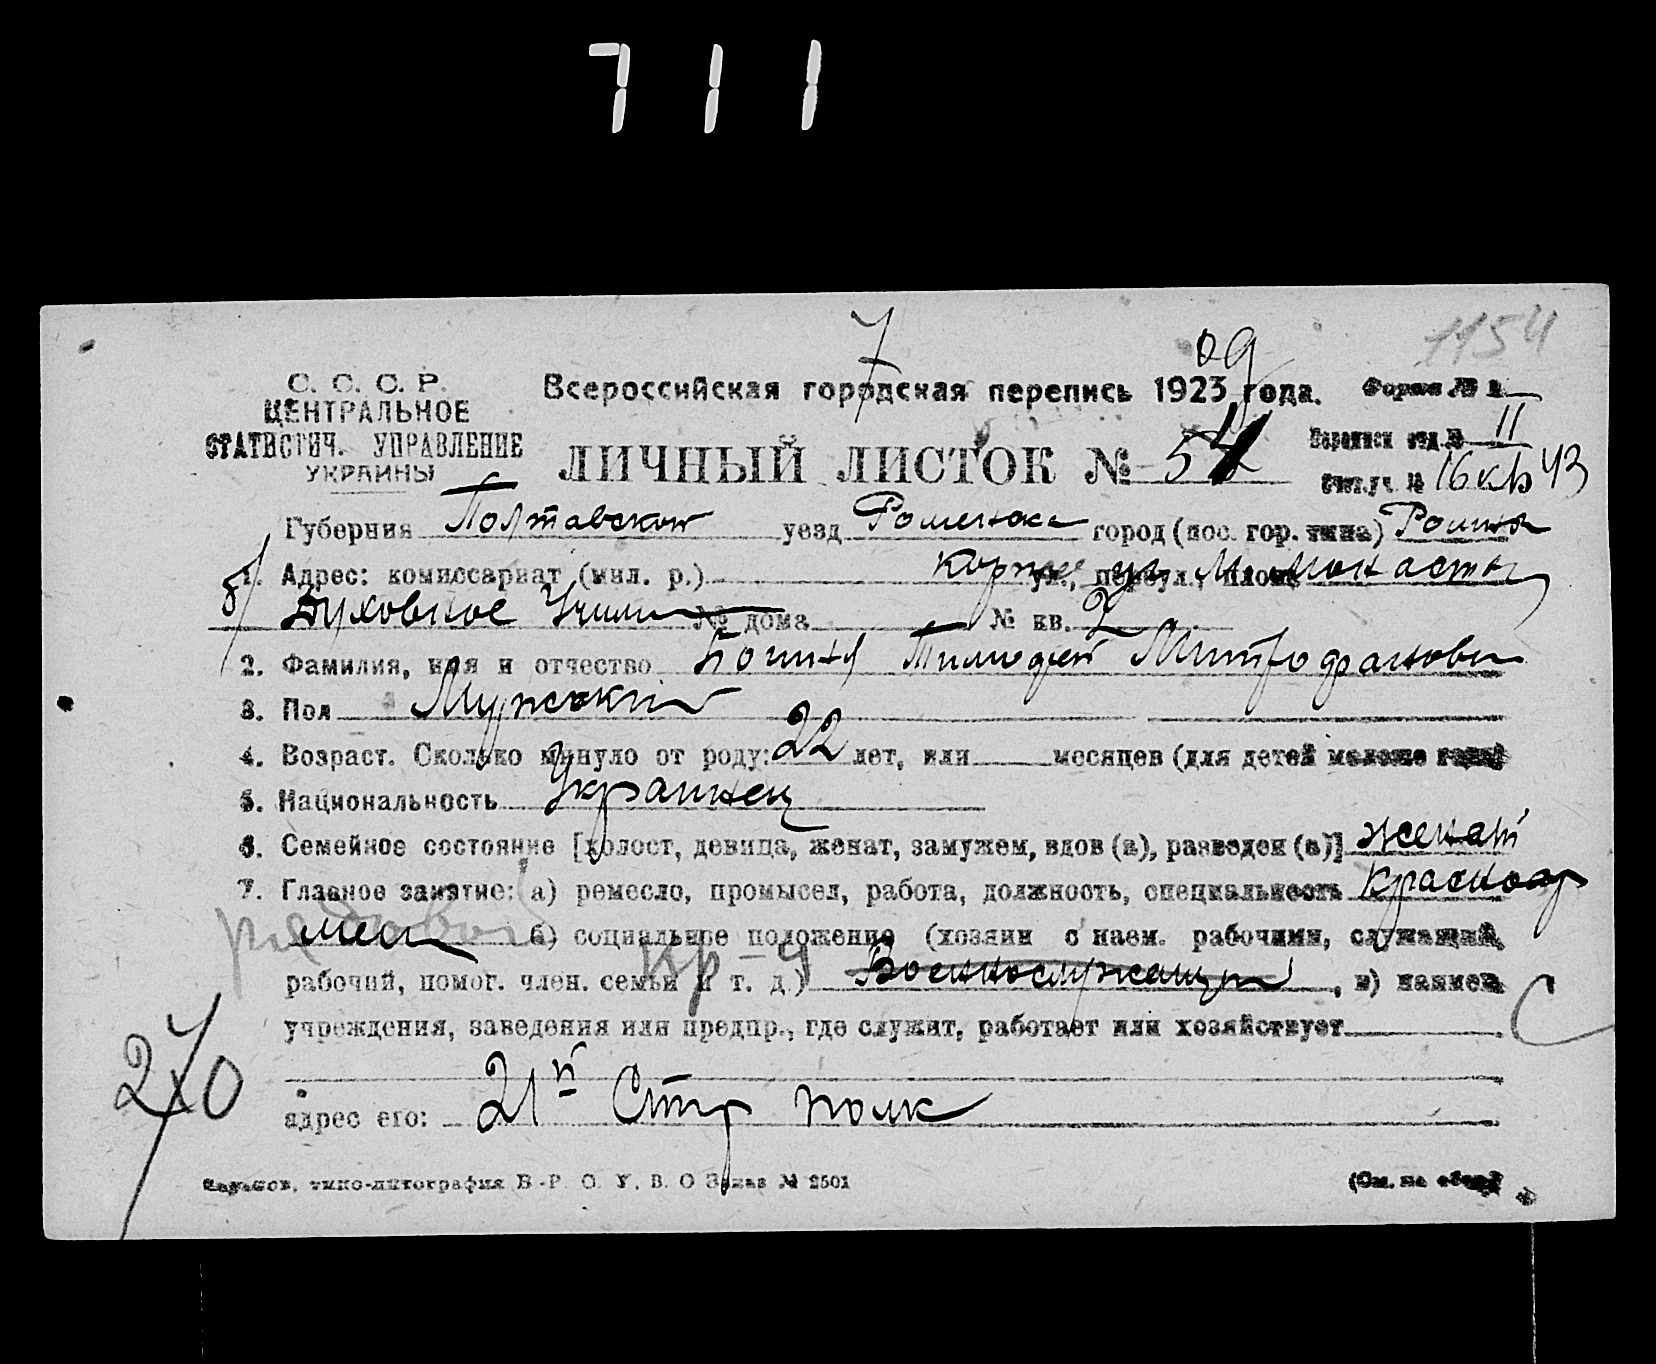 711
1154
7
09
С. С. С. Р.
ЦЕНТРАЛЬНОЕ
СТАТИСТИЧ. УПРАВЛЕНИЕ
УКРАИНЫ
Всероссийская городская перепись 1923 года. Форма № 1
ЛИЧНЫЙ ЛИСТОК № 54
Переписн. отд. № II
Счет. уч. № 16 кв 43
Губерния Полтавской уезд город (пос. гор. типа)
1. Адрес: комиссариат (мил. р.) ул., переул., площ.
б/ Духовное № дома № кв. 2
2. Фамилия, имя и отчество Тимофей Митрофанович
3. Пол Мужской
4. Возраст. Сколько минуло от роду: 22 лет, или месяцев (для детей моложе года)
5. Национальность Украинец
6. Семейное состояние [холост, девица, женат, замужем, вдов (а), разведен (а)] женат
7. Главное занятие: а) ремесло, промысел, работа, должность, специальность Красноар
рядовой
меец б) социальное положение (хозяин с наем. рабочими, служащий,
кр-н
рабочий, помог. член. семьи и т. д.) Военнослужащий, в) наимен.
учреждения, заведения или предпр., где служит, работает или хозяйствует
270
адрес его: 21й Стр полк
Харьков, типо-литография В.-Р. О. У. В. О Заказ № 2501 (См. на обор.)